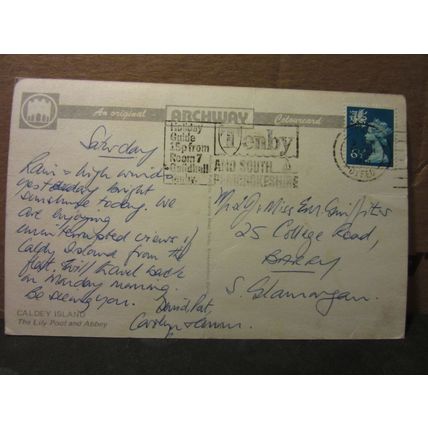 An original ARCHWAY Colourcard
Holiday
Guide
15p from
Room 7
Guildhall
Tenby
Tenby
AND SOUTH
PEMBROKESHIRE
6½
Saturday
Rain & high winds
yesterday bright
sunshine today. We
are enjoying
uninterrupted views of
Caldy Island from the
flat. Will travel back
on Monday morning.
Be seeing you.
David, Pat,
Carolyn &
25 College Road,
BARRY
S. Glamorgan.
CALDEY ISLAND
The Lily Pool and Abbey